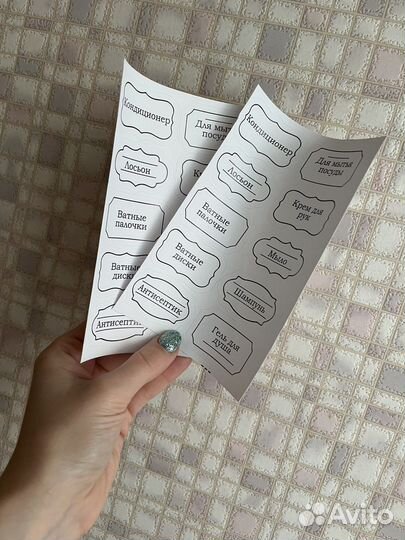 Кондиционер
Для мытья
Лосьон
Ватные
палочки
Ватные
диски
Антисептик
Кондиционер
Для мытья
посуды
Лосьон
Крем для
рук
Ватные
палочки
Мыло
Ватные
диски
Шампунь
Антисептик
Гель для
душа
Avito